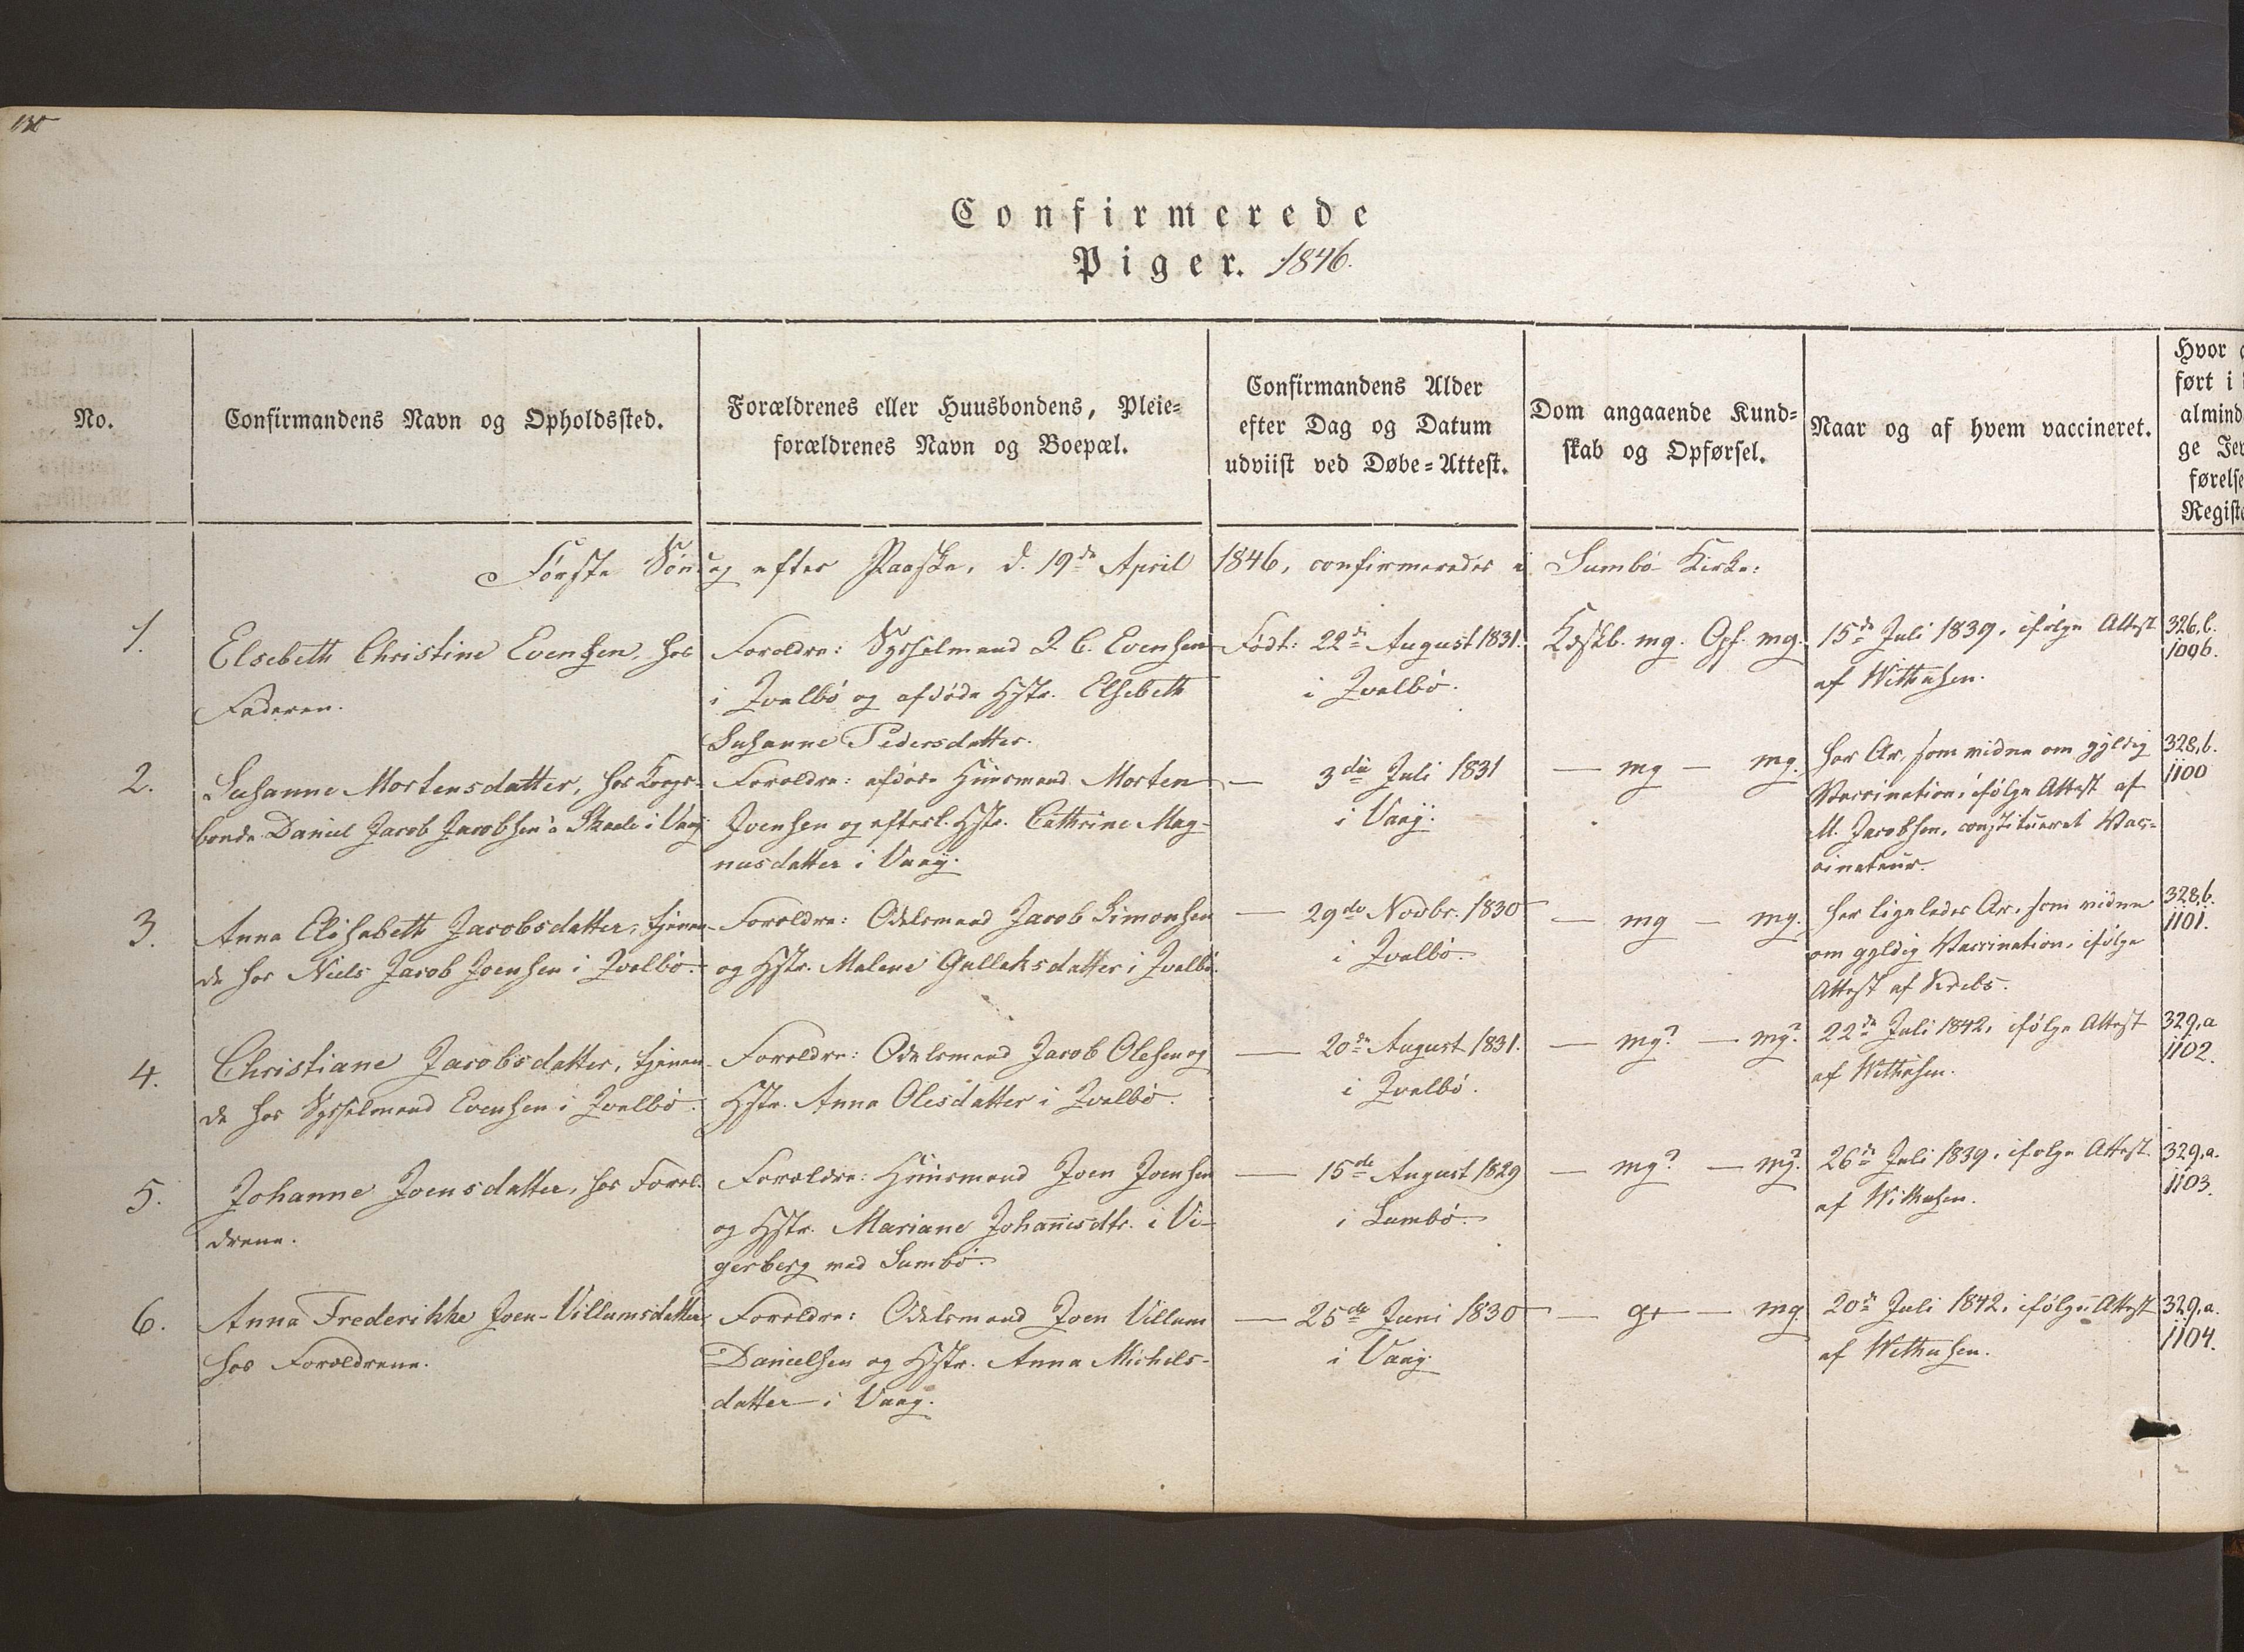 Confirmerede
Piger. 1846.
No.
Confirmandens Navn og Opholdssted.
Forældrenes eller Huusbondens, Pleie-
forældrenes Navn og Boepæl.
Confirmandens Alder
efter Dag og Datum
udviist ved Døbe-Attest.
Dom angaaende Kund-
skab og Opførsel.
Naar og af hvem vaccineret.
Hvor
ført i
almind
ge Je
førelse
Regist
Første Søndag efter Paaske, d. 19de April 1846, confirmeredes i Sumbö Kirke:
1.
Elsebeth Christine Evensen, hos
Faderen.
Foreldre: Sysselmand J. C. Evensen
i Qvalbö og afdöde Hstr. Elsebeth
Susanne Pedersdatter.
Födt: 22de August 1831.
i Qvalbö.
Kdskb. mg. Opf. mg.
15de Juli 1839, ifölge Attest
af Withusen.
326,b.
1096.
2.
Susanne Mortensdatter, hos Konge-
bonde Daniel Jacob Jacobsen a Skaale i Vaag
Foreldre: afdöde Huusmand Morten
Joensen og efterl. Hstr. Cathrine Mag-
nusdatter i Vaag.
— 3die Juli 1831
i Vaag.
— mg — mg.
har Ar, som vidne om gyldig
Vaccination, ifölge Attest af
M. Jacobsen, constitueret Vac-
cinateur.
328,b.
1100
3.
Anna Elisabeth Jacobsdatter, tjenen-
de hos Niels Jacob Joensen i Qvalbö.
Foreldre: Odelsmand Jacob Simonsen
og Hstr. Malene Gulleksdatter i Qvalbö.
— 29de Novbr. 1830
i Qvalbö.
— mg — mg.
har ligeledes Ar, som vidne
om gyldig Vaccination, ifölge
Attest af Krebs.
328,b.
1101.
4.
Christiane Jacobsdatter, tjenen-
de hos Sysselmand Evensen i Qvalbö.
Foreldre: Odelsmand Jacob Olesen og
Hstr. Anna Olesdatter i Qvalbö.
— 20de August 1831.
i Qvalbö.
— mg? — mg?
22de Juli 1842, ifölge Attest
af Withusen.
329,a
1102.
5.
Johanne Joensdatter, hos Forel-
drene.
Forældre: Huusmand Joen Joensen
og Hstr. Mariane Johannisdtr. i Vi-
gerberg ved Sumbö.
— 15de August 1829
i Sumbö.
— mg? — mg?
26de Juli 1839, ifölge Attest.
af Withusen.
329,a.
1103.
6.
Anna Frederikke Joen-Villumsdatter
hos Forældrene.
Foreldre: Odelsmand Joen Villum
Danielsen og Hstr. Anna Michels-
datter i Vaag.
— 25de Juni 1830
i Vaag.
— g+ — mg.
20de Juli 1842, ifölge Attest
af Withusen.
329,a.
1104.